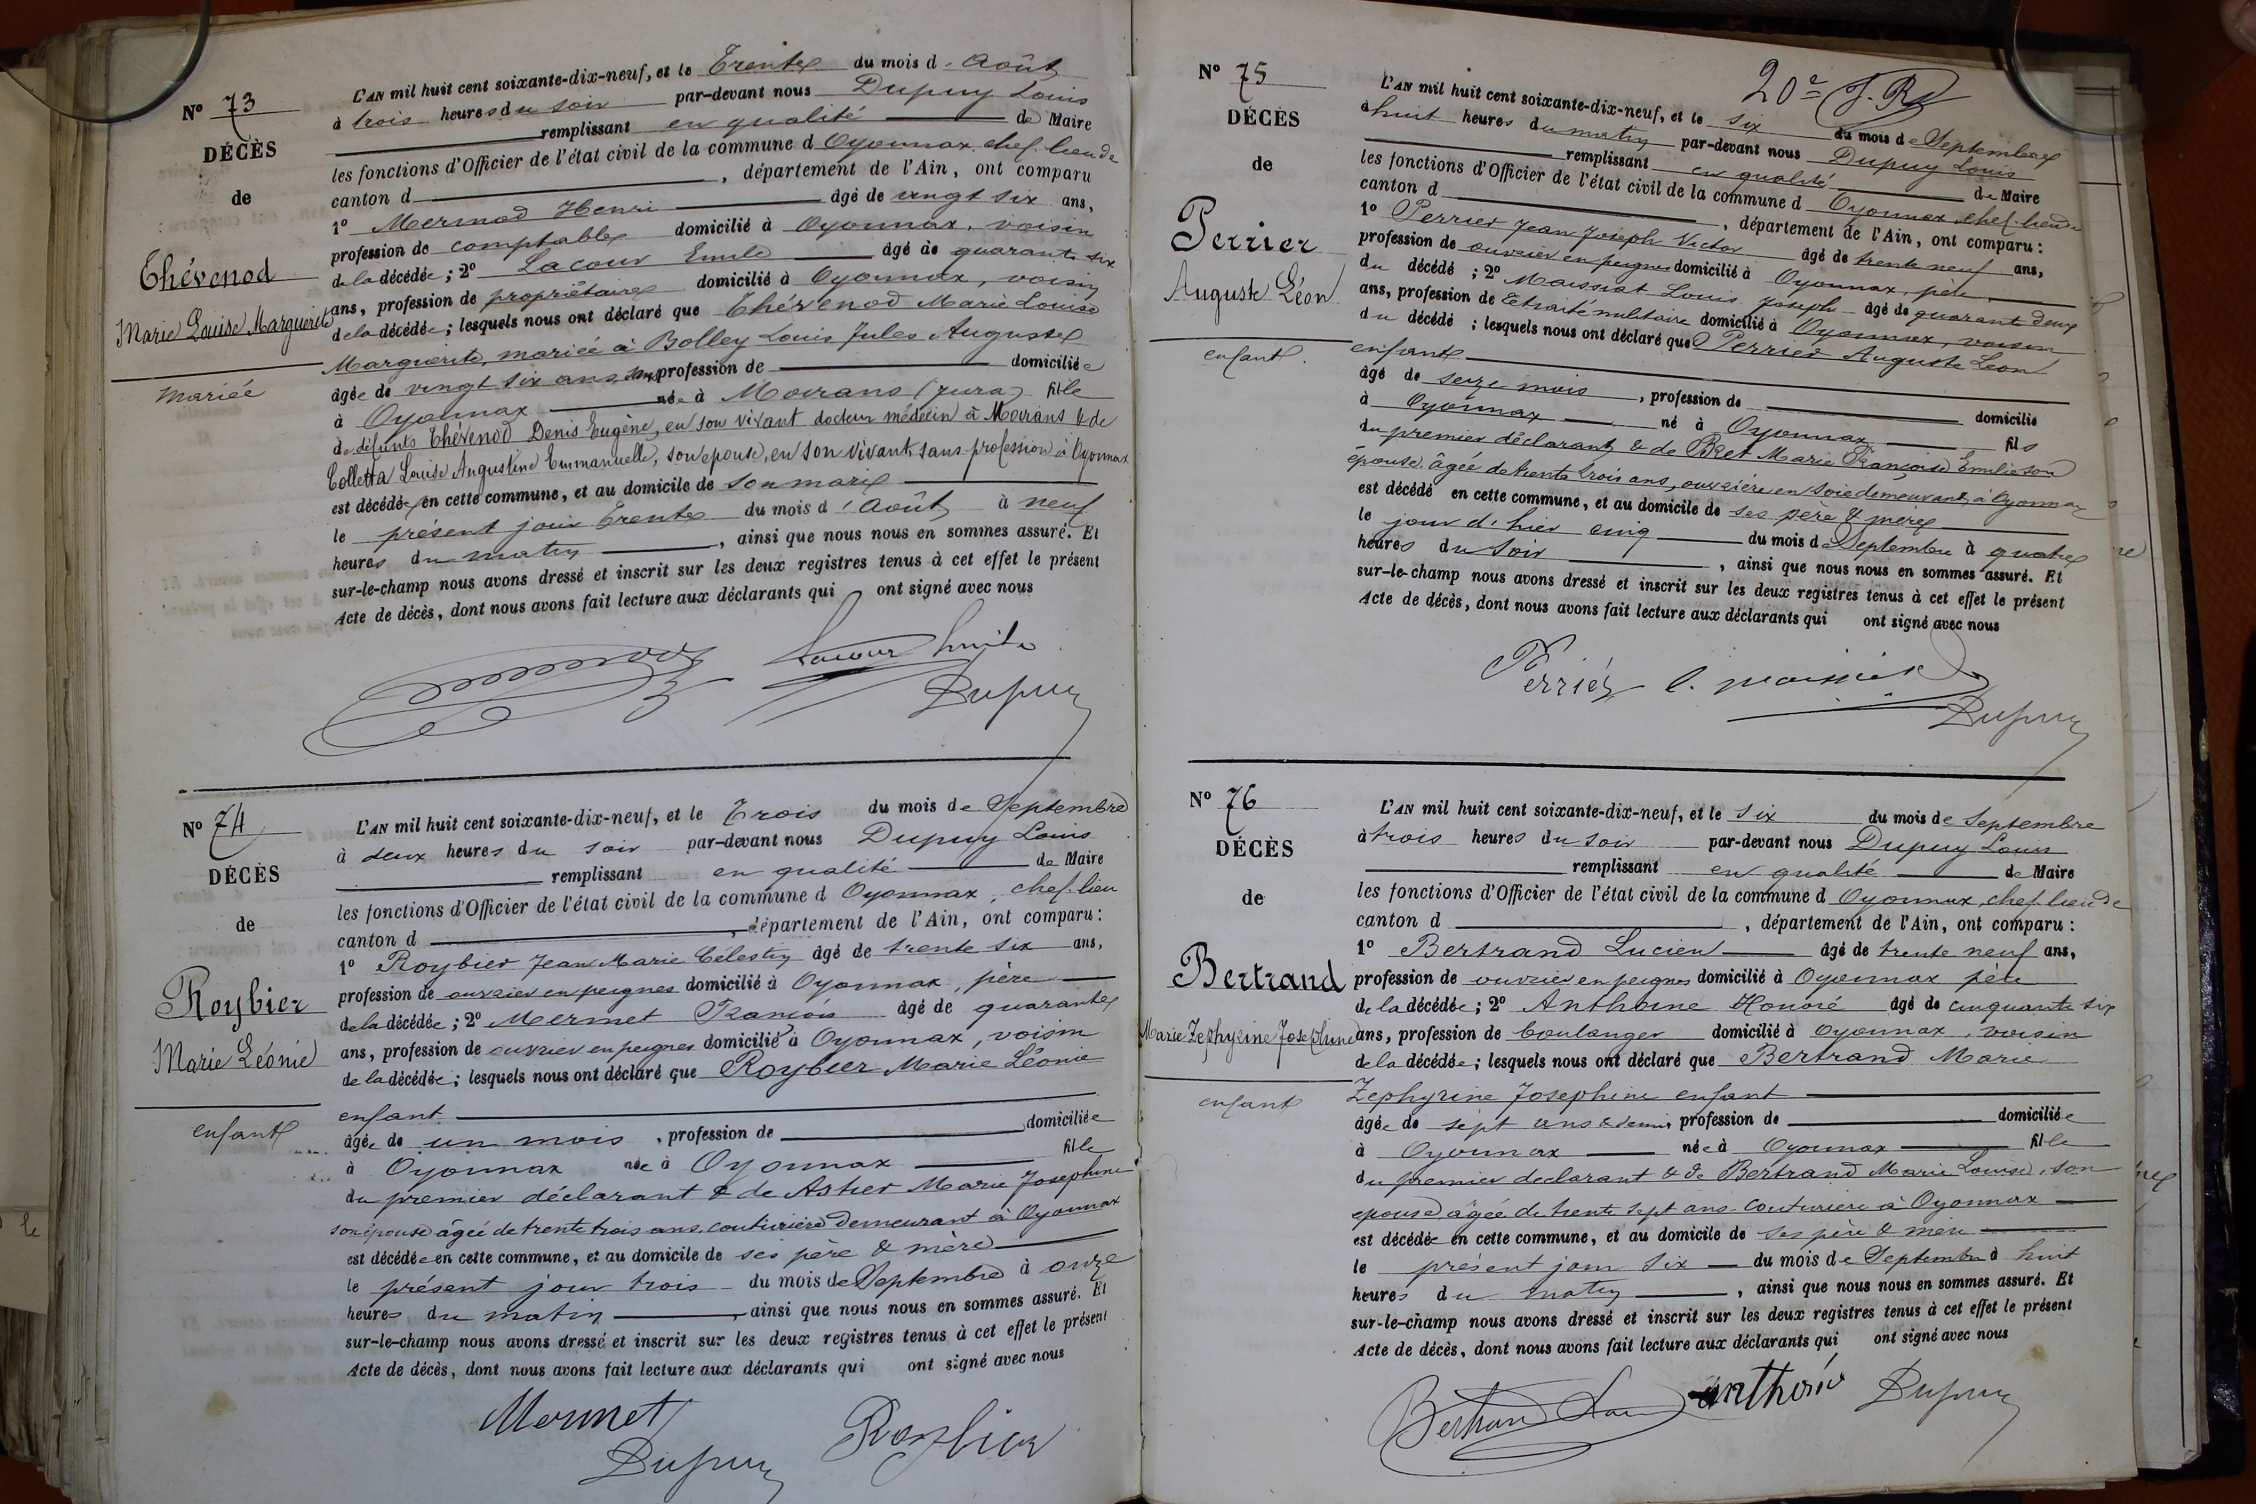 Nº 73
DÉCÈS
de
Thévenod
Marie Louise Marguerite
mariée
L'AN mil huit cent soixante-dix-neuf, et le Trente du mois d'Août
à trois heures du soir par-devant nous Dupuy Louis
remplissant en qualité de Maire
les fonctions d'Officier de l'état civil de la commune d'Oyonnax, chef-lieu de
canton d , département de l'Ain, ont comparu
1º Mermod Henri âgé de vingt six ans,
profession de comptable domicilié à Oyonnax, voisin
de la décédée ; 2º Lacour Emile âgé de quarante six
ans, profession de propriétaire domicilié à Oyonnax, voisin
de la décédée ; lesquels nous ont déclaré que Thévenod Marie Louise
Marguerite, mariée à Bolley Louis Jules Auguste
âgée de vingt six ans, profession de domiciliée
à Oyonnax née à Moirans (Jura) fille
de défunts Thévenod Denis Eugène, en son vivant docteur médecin à Moirans & de
Colletta Louise Augustine Emmanuelle, son épouse, en son vivant sans profession à Oyonnax
est décédée en cette commune, et au domicile de son mari
le présent jour trente du mois d'Août à neuf
heures du matin , ainsi que nous nous en sommes assuré. Et
sur-le-champ nous avons dressé et inscrit sur les deux registres tenus à cet effet le présent
Acte de décès, dont nous avons fait lecture aux déclarants qui ont signé avec nous
Lacour Emile
Dupuy
Nº 74
DÉCÈS
de
Roybier
Marie Léonie
enfant
L'AN mil huit cent soixante-dix-neuf, et le Trois du mois de Septembre
à deux heures du soir par-devant nous Dupuy Louis
remplissant en qualité de Maire
les fonctions d'Officier de l'état civil de la commune d Oyonnax, chef-lieu
canton d , département de l'Ain, ont comparu :
1º Roybier Jean Marie Célestin âgé de trente six ans,
profession de ouvrier en peignes domicilié à Oyonnax, père
de la décédée ; 2º Mermet François âgé de quarante
ans, profession de ouvrier en peignes domicilié à Oyonnax, voisin
de la décédée ; lesquels nous ont déclaré que Roybier Marie Léonie
enfant
âgée de un mois , profession de domiciliée
à Oyonnax née à Oyonnax fille
du premier déclarant & de Astier Marie Josephine
son épouse âgée de trente trois ans, couturière demeurant à Oyonnax
est décédée en cette commune, et au domicile de ses père & mère
le présent jour trois du mois de Septembre à onze
heures du matin , ainsi que nous nous en sommes assuré. Et
sur-le-champ nous avons dressé et inscrit sur les deux registres tenus à cet effet le présent
Acte de décès, dont nous avons fait lecture aux déclarants qui ont signé avec nous
Mermet
Roybier
Dupuy
20e
Nº 75
DÉCÈS
de
Perrier
Auguste Léon
enfant.
L'AN mil huit cent soixante-dix-neuf, et le six du mois de Septembre
à huit heures du matin par-devant nous Dupuy Louis
remplissant en qualité de Maire
les fonctions d'Officier de l'état civil de la commune d Oyonnax, chef-lieu de
canton d , département de l'Ain, ont comparu :
1º Perrier Jean Joseph Victor âgé de trente neuf ans,
profession de ouvrier en peignes domicilié à Oyonnax, père
du décédé ; 2º Maissiat Louis Joseph âgé de quarante deux
ans, profession de Retraité militaire domicilié à Oyonnax, voisin
du décédé ; lesquels nous ont déclaré que Perrier Auguste Léon
enfant
âgé de seize mois , profession de domicilié
à Oyonnax né à Oyonnax fils
du premier déclarant & de Bret Marie Françoise Emilie son
épouse, âgée de trente trois ans, ouvrière en soie demeurant à Oyonnax
est décédé en cette commune, et au domicile de ses père & mère
le jour d'hier cinq du mois de Septembre à quatre
heures du soir , ainsi que nous nous en sommes assuré. Et
sur-le-champ nous avons dressé et inscrit sur les deux registres tenus à cet effet le présent
Acte de décès, dont nous avons fait lecture aux déclarants qui ont signé avec nous
Perrier L. Maissiat
Dupuy
Nº 76
DÉCÈS
de
Bertrand
Marie Zephyrine Josephine
enfant
L'AN mil huit cent soixante-dix-neuf, et le six du mois de Septembre
à trois heures du soir par-devant nous Dupuy Louis
remplissant en qualité de Maire
les fonctions d'Officier de l'état civil de la commune d Oyonnax, chef-lieu de
canton d , département de l'Ain, ont comparu :
1º Bertrand Lucien âgé de trente neuf ans,
profession de ouvrier en peignes domicilié à Oyonnax père
de la décédée ; 2º Anthoine Honoré âgé de cinquante six
ans, profession de boulanger domicilié à Oyonnax, voisin
de la décédée ; lesquels nous ont déclaré que Bertrand Marie
Zephyrine Josephine enfant
âgée de sept ans & demi, profession de domiciliée
à Oyonnax née à Oyonnax fille
du premier declarant & de Bertrand Marie Louise, son
epouse, âgée de trente sept ans couturière à Oyonnax
est décédée en cette commune, et au domicile de ses père & mère
le présent jour six du mois de Septembre à huit
heures du matin , ainsi que nous nous en sommes assuré. Et
sur-le-champ nous avons dressé et inscrit sur les deux registres tenus à cet effet le présent
Acte de décès, dont nous avons fait lecture aux déclarants qui ont signé avec nous
Bertrand Anthoine Dupuy